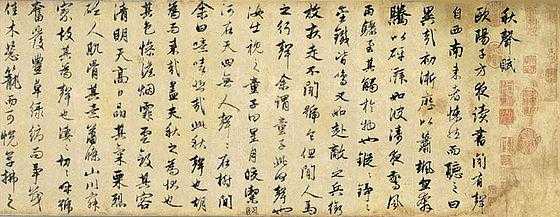 秋聲賦
歐陽子方夜讀書聞有聲
自西南来者悚然而聽之曰
異哉初淅瀝以蕭颯忽奔
騰以砰湃如波濤夜驚風
雨驟至其觸於物也鏦鏦錚錚
金鐵皆鳴又如赴敵之兵銜
枚疾走不聞號令但聞人馬
之行聲余謂童子此何聲也
汝出視之童子曰星月皎潔明
河在天四無人聲聲在樹間
余曰噫嘻悲哉此秋聲也胡
為而来哉盖夫秋之為狀也
其色慘淡烟霏雲斂其容
清明天高日晶其氣栗冽
砭人肌骨其意蕭條山川寂
寥故其為聲也淒淒切切呼號
奮發豐草綠縟而爭茂
佳木葱籠而可悅草拂之